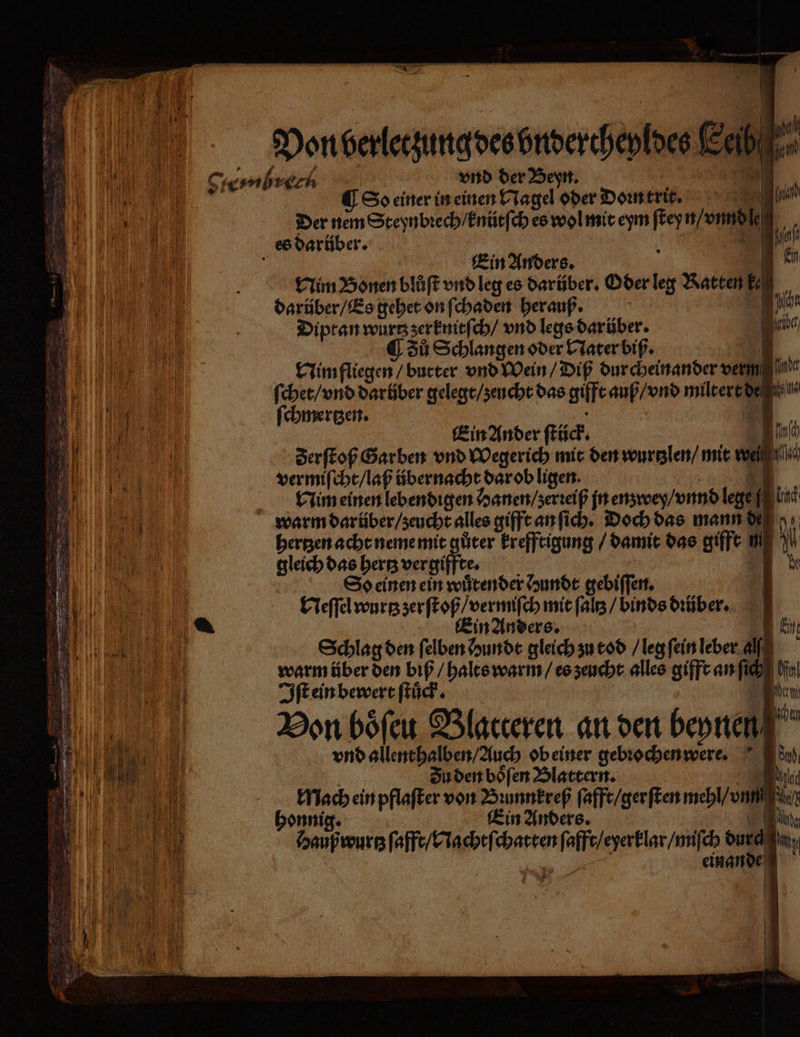 Von verletzung des vndertheyldes Leib
Stembrech
vnd der Beyn.
¶ So einer in einen Nagel oder Dorn trit.
Der nem Steynbrech/knütsch es wol mit eym steyn/vnnd le
es darüber.
Ein Anders.
Nim Bonen blůst vnd leg es darüber. Oder leg Ratten
darüber/Es gehet on schaden herauß.
Diptan wurtz zerknitsch/ vnd legs darüber.
¶ Zů Schlangen oder Nater biß.
Nim fliegen / butter vnd Wein / Diß durcheinander verm
schet/vnd darüber gelegt/zeucht das gifft auß/vnd miltert de
schmertzen.
Ein Ander stück.
Zerstoß Garben vnd Wegerich mit den wurtzlen/ mit wei
vermischt/laß übernacht darob ligen.
Nim einen lebendigen Hanen/zerreiß jn enzwey/vnnd lege
warm darüber/zeucht alles gifft an sich. Doch das mann de
hertzen acht neme mit gůter krefftigung / damit das gifft
gleich das hertz vergiffte.
So einen ein wůtender Hundt gebissen.
Nessel wurtz zerstoß/vermisch mit saltz / binds drüber.
Ein Anders.
Schlag den selben Hundt gleich zu tod / leg sein leber als
warm über den biß / halts warm / es zeucht alles gifft an sich
Ist ein bewert stůck.
Von bösen Blatteren an den beynen
vnd allenthalben/Auch ob einer gebrochen were.
Zu den bösen Blattern.
Mach ein pflaster von Brunnkreß safft/gersten mehl/vnn
honnig.
Ein Anders.
Haußwurtz safft/Nachtschatten safft/eyerklar/misch durch
einande